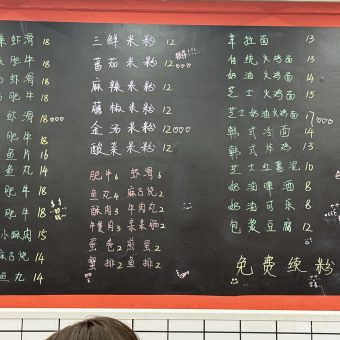 虾滑 18
肥牛 18
虾滑 18
肥牛 18
虾滑 18
肥牛 18
鱼片 16
鱼丸 14
肥牛 18
肥牛 18
小酥肉 15
麻古烧 14
鱼丸 14
三鲜米粉 12
蕃茄米粉 12
麻辣米粉 12
藤椒米粉 12
金汤米粉 12
酸菜米粉 12
肥牛 6 虾滑 6
鱼丸 4 麻古烧 4
酥肉 3 牛肉丸 3
蛋卷 2 煎蛋 2
蟹排 2 鱼排 2
拉面 13
传统火鸡面 13
奶油火鸡面 14
芝士火鸡面 15
芝士奶油火鸡面 17
韩式冷面 14
韩式拌鸡面 13
芝士红薯泥 10
奶油啤酒 8
奶油可乐 8
包浆豆腐 12
免费续粉